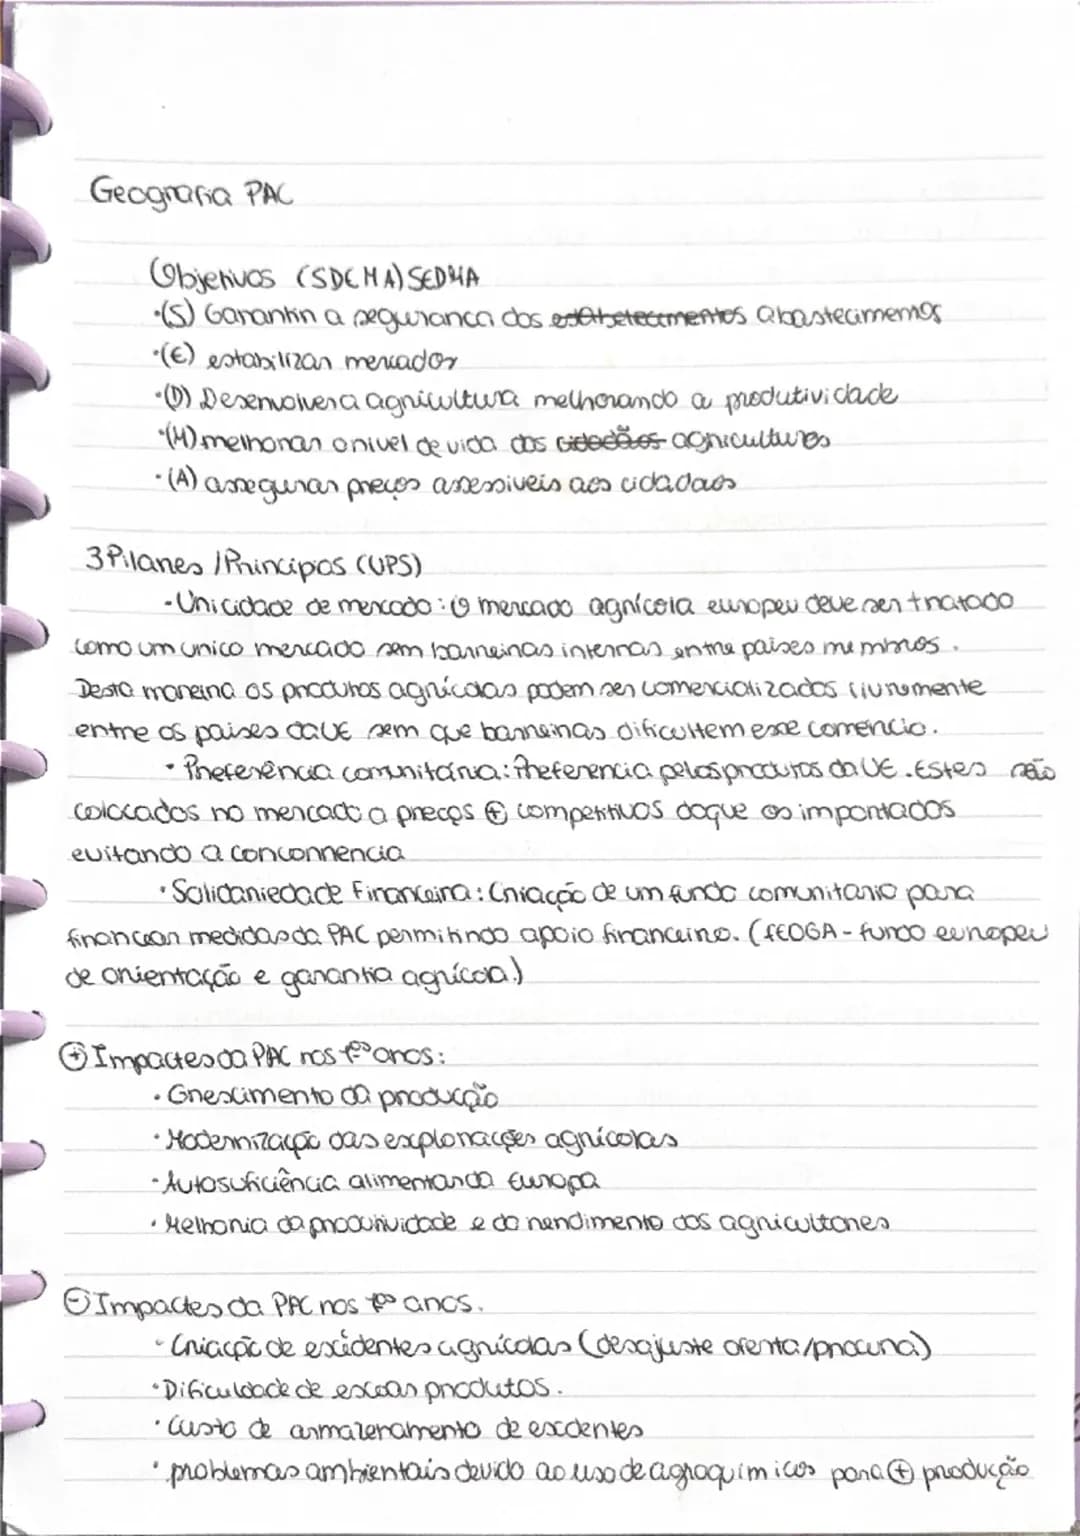 Geografia PAC
Objetivos (SDEMA) SEDMA
·(S) Garantir a segurança dos estabelecimentos abastecimentos
·(E) estabilizar mercados
·(D) Desenvolver a agricultura melhorando a produtividade
·(M) melhorar o nivel de vida dos cidadãos agricultures
·(A) assegurar preços assessiveis aos cidadaos
3 Pilares / Principos (UPS)
- Unicidade de mercado: O mercado agrícola europeu deve ser tratado
como um unico mercado sem barreiras internas entre paises membros.
Desta maneira os produtos agrícolas podem ser comercializados livremente
entre os paises da UE sem que barreiras dificultem esse comercio.
· Preferência comunitária: Preferencia pelos produtos da UE. Estes são
colocados no mercado a preços ⊕ competitivos doque os importados
evitando a concorrencia
· Solidariedade Financeira: Criação de um fundo comunitario para
financear medidas da PAC permitindo apoio financeiro. (FEOGA - fundo europeu
de orientação e garantia agrícola.)
⊕ Impactes da PAC nos 1ºs anos:
· Crescimento da producção
· Modernização das explorações agrícolas
· Autosuficiência alimentar da Europa
· Melhoria da produtividade e do rendimento dos agricultores
⊖ Impactes da PAC nos 1ºs anos.
- Criação de exidentes agrícolas (desajuste oferta/procura)
· Dificuldade de escoar produtos.
· Custo de armazenamento de excdentes
· problemas ambientais devido ao uso de agroquimicos para ⊕ produção